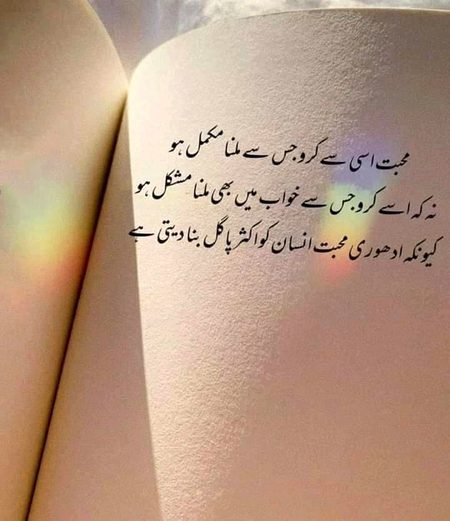 محبت اسی سے کرو جس سے ملنا مکمل ہو
نہ کہ اسے کرو جس سے خواب میں بھی ملنا مشکل ہو
کیونکہ ادھوری محبت انسان کو اکثر پاگل بنا دیتی ہے